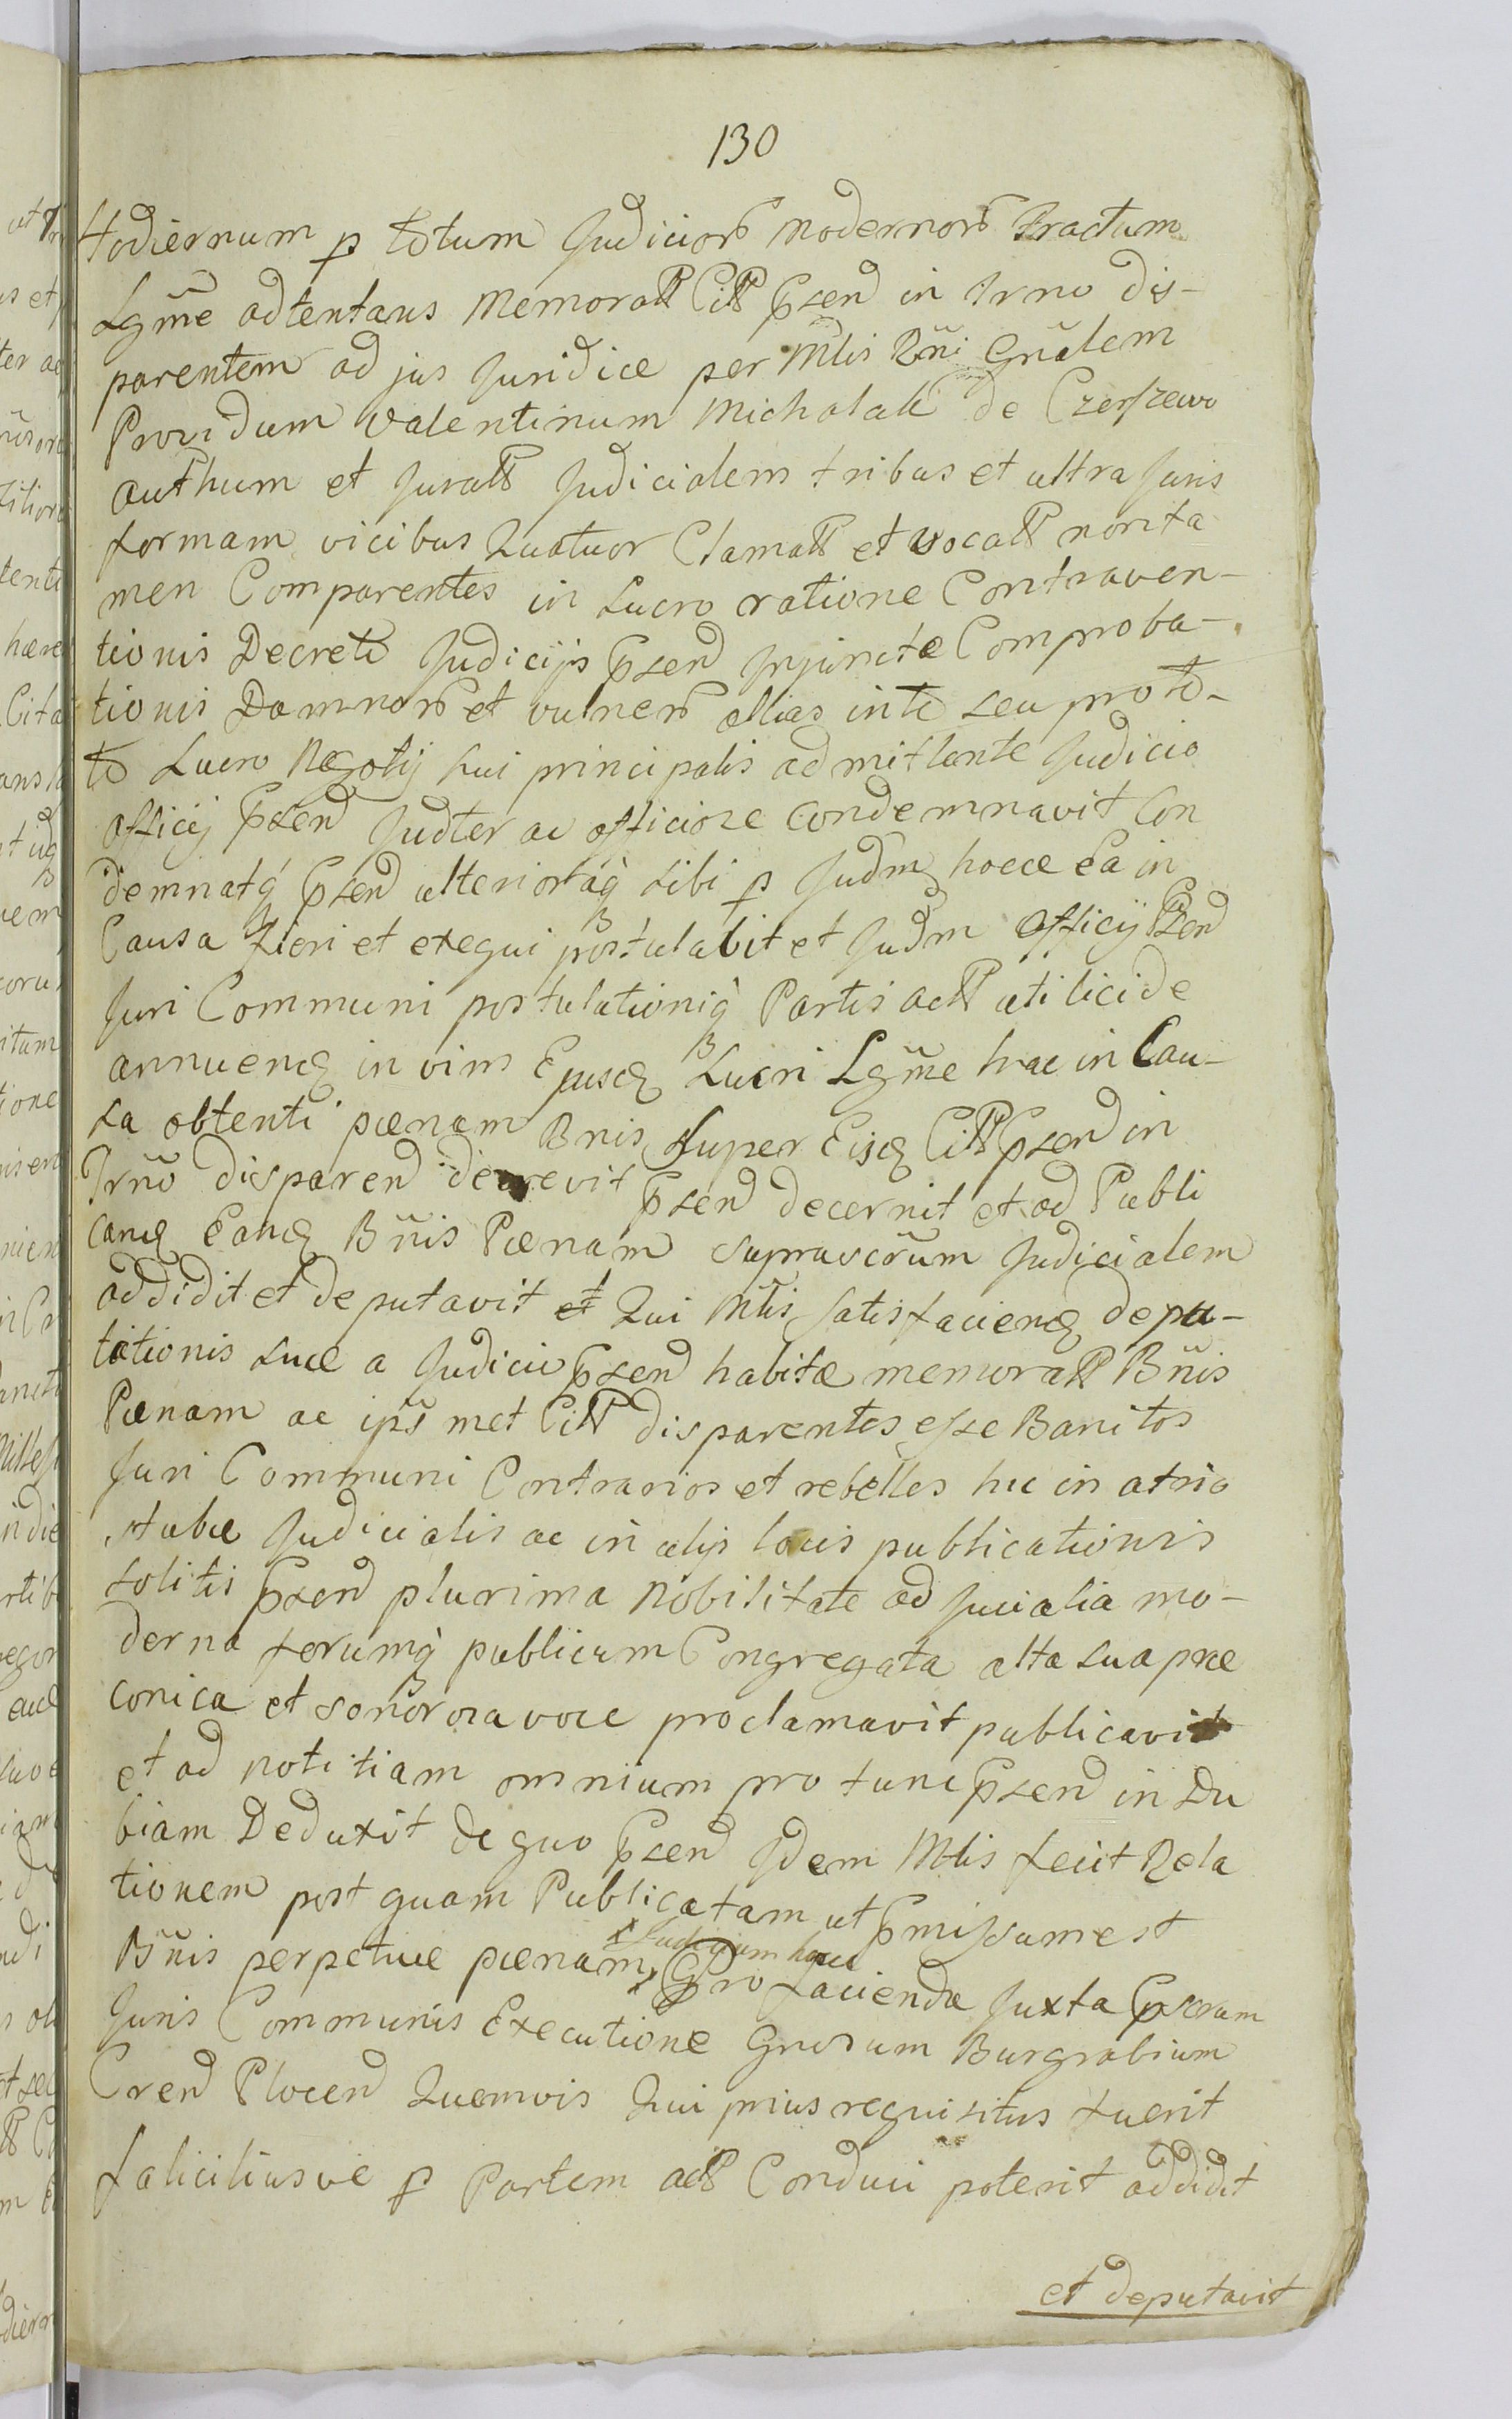 130
Hodiernum p totum Judicior modernor tractum
Lgm̃e adtentans memoratt Citt p̃send in Trno dis-
parentem ad jus Juridice per Mtlis Rñi Gnãlem
Providum Valentinum Michalak de Czerszewo
authum et Juratt Judicialem tribus et ultra Juris
formam vicibus Quatuor Clamatt et vocatt non ta
men Comparentes in Lucro ratione Contraven-
tionis Decreti Judicijs p̃send Injunctæ Comproba-
tionis Damnor et vulner alias inte seu proto-
to Lucro Negotij sui principalis admittente Judicio
officij p̃send Judter ac officiose condemnavit Con
demnatq́ p̃send ulterioraq́ sibi p Judm hocce Ea in
Causa fieri et exequi postulabit et Judm officij p̃send
Juri Communi postulationiq́ Partis actt uti licide
annuend in vim Ejusd Lucri Lgm̃e hac in Cau-
sa obtenti pænam Bnis super Eisd Citt p̃send in
Trño disparend decrevit p̃send decernit et ad Publi
cand Eand Bñis Pænam suprascrum Judicialem
addidit et deputavit et Qui Mtlis satisfaciend depu-
tationis suæ a Judicio p̃send habitæ memoratt Bñis
Pænam ac ips̃ met Citt disparentes esse Banitos
Juri Communi Contrarios et rebelles hic in atrio
stubæ Judicialis ac in alijs locis publicationis
solitis p̃send plurima Nobilitate ad Juicialia mo-
derna forumq́ publicum Congregata alta sua præ
conica et sonorosa voce proclamavit publicavit
et ad notitiam omnium pro tunc p̃send in du
biam Deduxit de quo p̃send Idem Mtlis fecit Rela
tionem post quam Publicatam ut p̃missum est
Judicium hocce
Bñis perpetuæ pænam Pro facienda Juxta p̃scrum
Juris Communis Executione Gnosum Burgrabium
Crend Plocend Quemvis Qui prius requisitus fuerit
faliciliusve p Partem actt Conduci poterit addidit
et deputavit